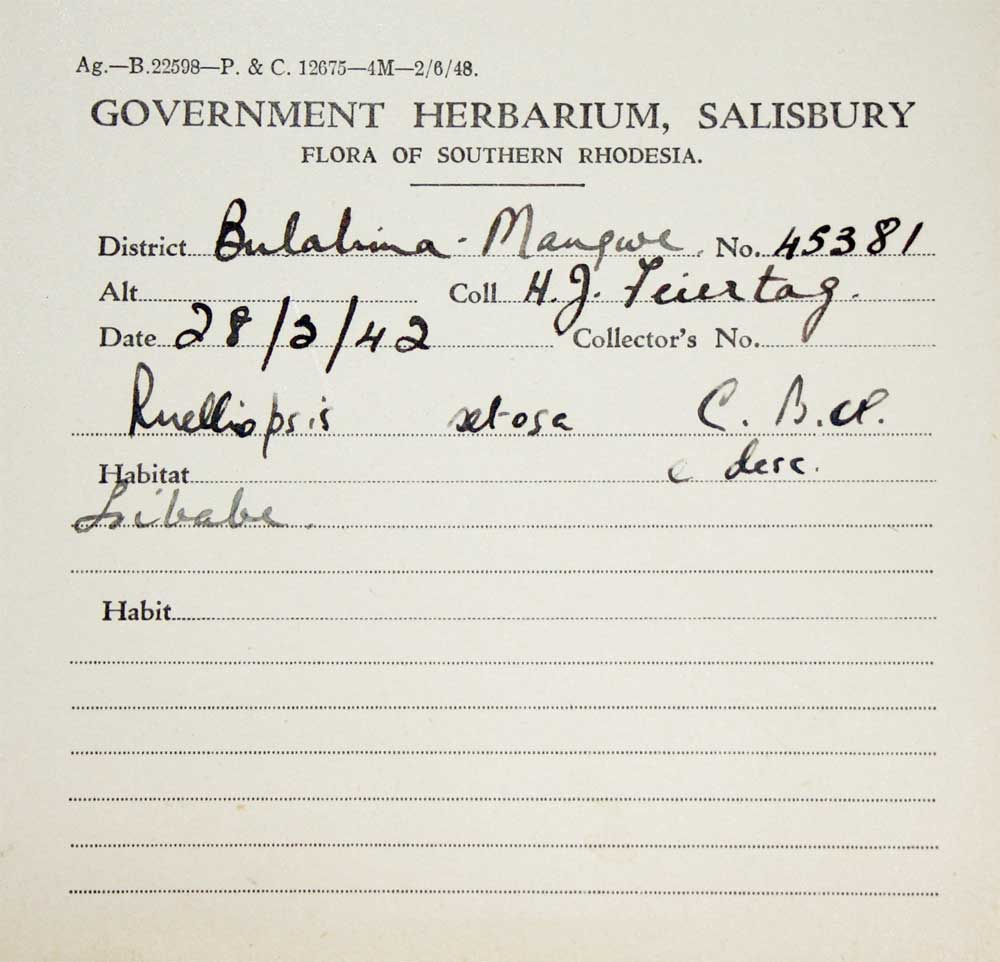 Ag.—B.22598—P. & C. 12675—4M—2/6/48.
GOVERNMENT HERBARIUM, SALISBURY
FLORA OF SOUTHERN RHODESIA.
District Bulalima-Mangwe. No. 45381
Alt. Coll H.J. Feiertag.
Date 28/2/42 Collector's No.
Ruelliopsis setosa C. B. Cl.
Habitat c desc.
Habit